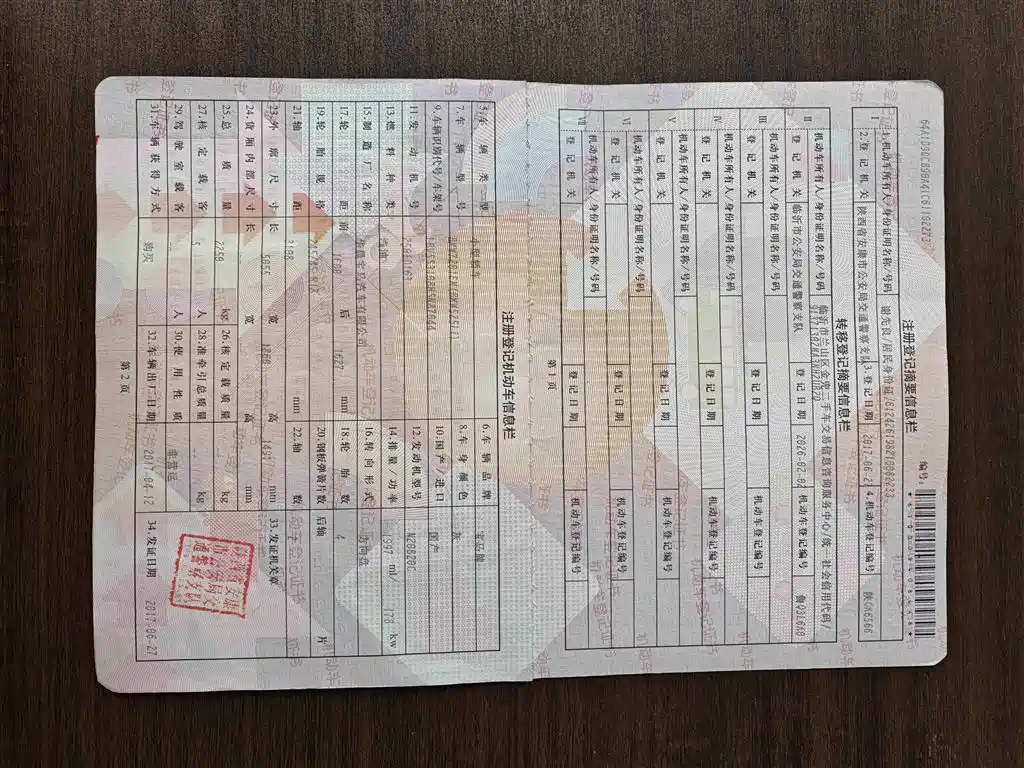 注册登记摘要信息栏
编号:
I
1.机动车所有人/身份证明名称/号码
2.登记机关
陕西省安康市公安局交通警察支队
3.登记日期
2017-06-27
4.机动车登记编号
转移登记摘要信息栏
II
机动车所有人/身份证明名称/号码
临沂市兰山区金兜二手车交易信息咨询服务中心/统一社会信用代码/
登记机关
临沂市公安局交通警察支队
登记日期
2026-02-02
机动车登记编号
鲁Q3L6K0
III
机动车所有人/身份证明名称/号码
登记机关
登记日期
机动车登记编号
IV
机动车所有人/身份证明名称/号码
登记机关
登记日期
机动车登记编号
V
机动车所有人/身份证明名称/号码
登记机关
登记日期
机动车登记编号
VI
机动车所有人/身份证明名称/号码
登记机关
登记日期
机动车登记编号
VII
机动车所有人/身份证明名称/号码
登记机关
登记日期
机动车登记编号
第1页
注册登记机动车信息栏
5.车辆类型
6.车辆品牌
宝马牌
7.车辆型号
8.车身颜色
灰
9.车辆识别代号/车架号
10.国产/进口
国产
11.发动机号
12.发动机型号
N20B20C
13.燃料种类
汽油
14.排量/功率
1997 ml/ 178 kw
15.制造厂名称
华晨宝马汽车有限公司
16.转向形式
方向盘
17.轮距
前 1608 后 1627 mm
18.轮胎数
4
19.轮胎规格
20.钢板弹簧片数
后轴 片
21.轴距
3108 mm
22.轴数
23.外廓尺寸
长 5055 宽 1868 高 1491 mm
33.发证机关章
24.货厢内部尺寸
长 宽 高 mm
25.总质量
2250 kg
26.核定载质量
kg
27.核定载客
5 人
28.准牵引总质量
kg
29.驾驶室载客
人
30.使用性质
非营运
31.车辆获得方式
购买
32.车辆出厂日期
2017-04-12
34.发证日期
2017-06-27
第2页